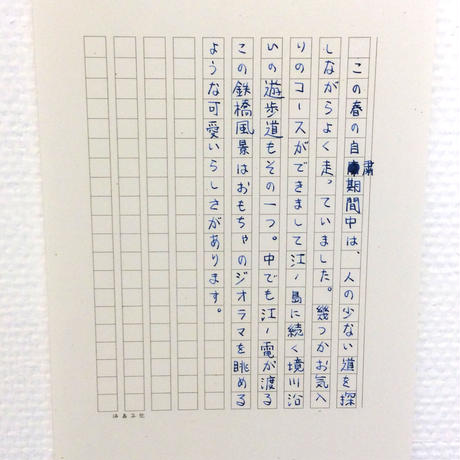 この春の自粛期間中は、人の少ない道を探
しながらよく走っていました。幾つかお気入
りのコースができまして江ノ島に続く境川沿
いの遊歩道もその一つ。中でも江ノ電が渡る
この鉄橋風景はおもちゃのジオラマを眺める
ような可愛いらしさがあります。